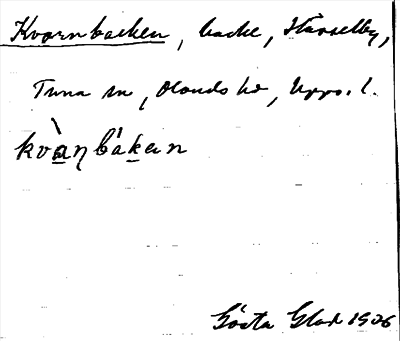 Kvarnbacken, backe, Hässelby,
Tuna sn, Olands hd, Upps. l.
kvàŋbákɐn
Gösta Glad 1906